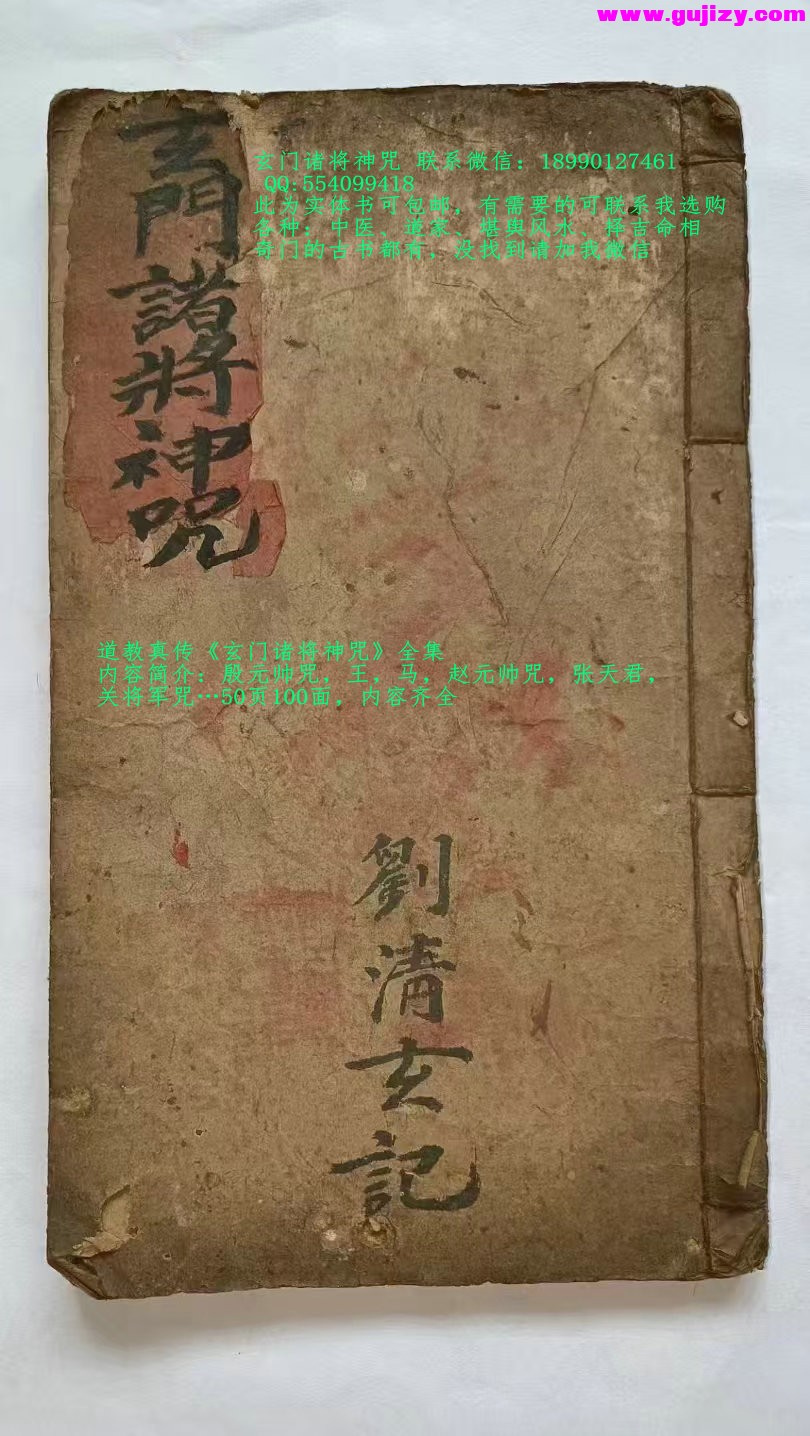 www.gujizy.com
玄門諸將神咒
玄门诸将神咒 联系微信：18990127461
QQ:554099418
此为实体书可包邮，有需要的可联系我选购
各种：中医、道家、堪舆风水、择吉命相
奇门的古书都有，没找到请加我微信
道教真传《玄门诸将神咒》全集
内容简介：殷元帅咒，王，马，赵元帅咒，张天君，
关将军咒…50页100面，内容齐全
劉清玄記